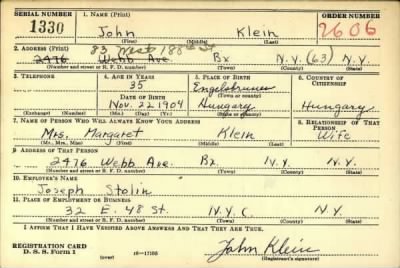 SERIAL NUMBER 1. NAME (Print) ORDER NUMBER
1330 John Klein 2606
(First) (Middle) (Last)
2. ADDRESS (Print)
83 West 188 St
2476 Webb Ave. Bx N.Y. (63) N.Y.
(Number and street or R. F. D. number) (Town) (County) (State)
3. TELEPHONE 4. AGE IN YEARS 5. PLACE OF BIRTH 6. COUNTRY OF CITIZENSHIP
35 Engelsbrunn
DATE OF BIRTH (Town or county)
Nov. 22 1904 Hungary Hungary
(Exchange) (Number) (Mo.) (Day) (Yr.) (State or country)
7. NAME OF PERSON WHO WILL ALWAYS KNOW YOUR ADDRESS 8. RELATIONSHIP OF THAT PERSON
Mrs. Margaret Klein Wife
(Mr., Mrs., Miss) (First) (Middle) (Last)
9. ADDRESS OF THAT PERSON
2476 Webb Ave. Bx. N.Y. N.Y.
(Number and street or R. F. D. number) (Town) (County) (State)
10. EMPLOYER'S NAME
Joseph Stolin
11. PLACE OF EMPLOYMENT OR BUSINESS
32 E. 48 St. N.Y.C. N.Y.
(Number and street or R. F. D. number) (Town) (County) (State)
I AFFIRM THAT I HAVE VERIFIED ABOVE ANSWERS AND THAT THEY ARE TRUE.
REGISTRATION CARD
D. S. S. Form 1 (over) John Klein
(Registrant's signature)